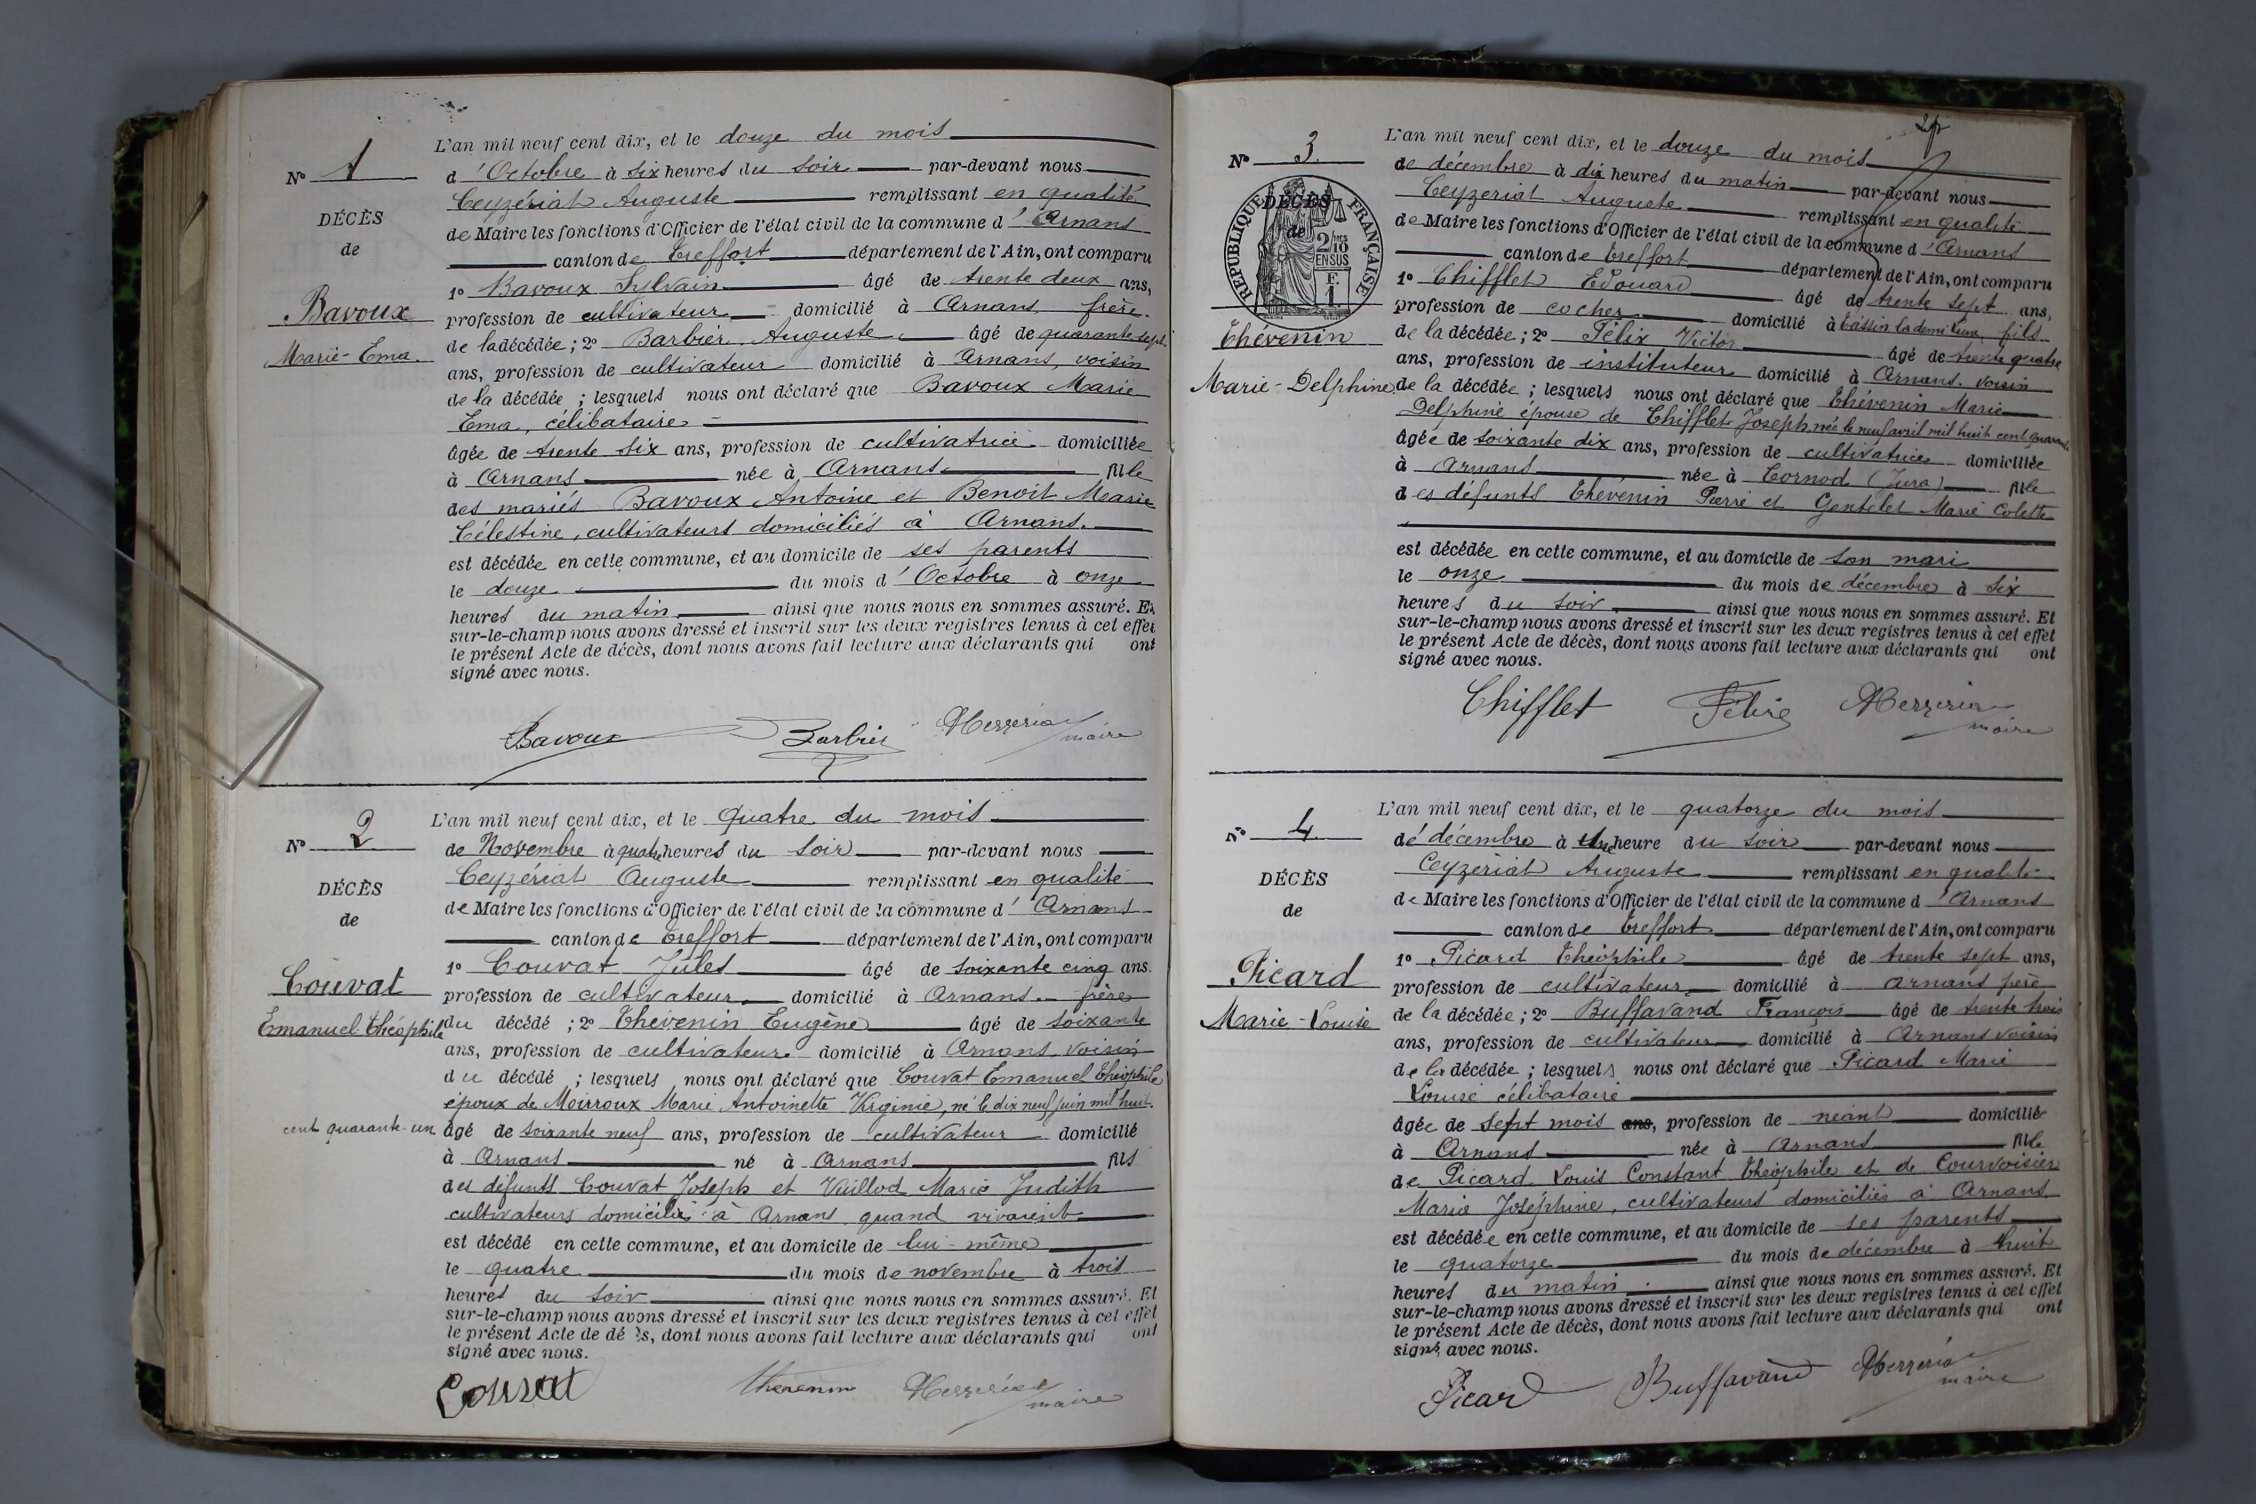 L'an mil neuf cent dix, et le douze du mois
N° 1
d'Octobre à six heures du soir par-devant nous
Ceyzériat Auguste remplissant en qualité
DÉCÈS
de Maire les fonctions d'Officier de l'état civil de la commune d'Arnans
de
canton de Treffort département de l'Ain, ont comparu
1° Bavoux Sylvain âgé de trente deux ans,
Bavoux
profession de cultivateur domicilié à Arnans, frère
de la décédée ; 2° Barbier Auguste âgé de quarante sept
Marie-Ema
ans, profession de cultivateur domicilié à Arnans, voisin
de la décédée ; lesquels nous ont déclaré que Bavoux Marie
Ema, célibataire
âgée de trente six ans, profession de cultivatrice domiciliée
à Arnans née à Arnans fille
des mariés Bavoux Antoine et Benoit Marie
Célestine, cultivateurs domiciliés à Arnans.
est décédée en cette commune, et au domicile de ses parents
le douze du mois d'Octobre à onze
heures du matin ainsi que nous nous en sommes assuré. Et
sur-le-champ nous avons dressé et inscrit sur les deux registres tenus à cet effet
le présent Acte de décès, dont nous avons fait lecture aux déclarants qui ont
signé avec nous.
Bavoux Barbier
maire
L'an mil neuf cent dix, et le quatre du mois
N° 2
de Novembre à quatre heures du soir par-devant nous
Ceyzériat Auguste remplissant en qualité
DÉCÈS
de Maire les fonctions d'Officier de l'état civil de la commune d'Arnans
de
canton de Treffort département de l'Ain, ont comparu
1° Couvat Jules âgé de soixante cinq ans.
Couvat
profession de cultivateur domicilié à Arnans frère
Emanuel Théophile
du décédé ; 2° Thévenin Eugène âgé de soixante
ans, profession de cultivateur domicilié à Arnans, voisin
du décédé ; lesquels nous ont déclaré que Couvat Emanuel Théophile
époux de Moirroux Marie Antoinette Virginie, né le dix neuf juin mil huit
cent quarante-un
âgé de soixante neuf ans, profession de cultivateur domicilié
à Arnans né à Arnans fils
des défunts Couvat Joseph et Vuillod Marie Judith
cultivateurs domiciliés à Arnans quand vivaient
est décédé en cette commune, et au domicile de lui-même
le quatre du mois de novembre à trois
heures du soir ainsi que nous nous en sommes assuré. Et
sur-le-champ nous avons dressé et inscrit sur les deux registres tenus à cet effet
le présent Acte de dé s, dont nous avons fait lecture aux déclarants qui ont
signé avec nous.
Couvat Thevenin
maire
L'an mil neuf cent dix, et le douze du mois
N° 3
de décembre à dix heures du matin par-devant nous
Ceyzeriat Auguste remplissant en qualité
RÉPUBLIQUE FRANÇAISE
DÉCÈS
de
2/10 EN SUS
F. 1
de Maire les fonctions d'Officier de l'état civil de la commune d'Arnans
canton de Treffort département de l'Ain, ont comparu
1° Chifflet Edouard âgé de trente sept ans,
profession de cocher domicilié à Tassin la demi Lune, fils
Thévenin
de la décédée ; 2° Félix Victor âgé de trente quatre
ans, profession de instituteur domicilié à Arnans. voisin
Marie-Delphine
de la décédée ; lesquels nous ont déclaré que Thévenin Marie
Delphine épouse de Chifflet Joseph, née le neuf avril mil huit cent quarante
âgée de soixante dix ans, profession de cultivatrice domiciliée
à Arnans née à Cornod (Jura) fille
des défunts Thévenin Pierre et Gentelet Marie Colette
est décédée en cette commune, et au domicile de son mari
le onze du mois de décembre à six
heures du soir ainsi que nous nous en sommes assuré. Et
sur-le-champ nous avons dressé et inscrit sur les deux registres tenus à cet effet
le présent Acte de décès, dont nous avons fait lecture aux déclarants qui ont
signé avec nous.
Chifflet Félix
maire
L'an mil neuf cent dix, et le quatorze du mois
N° 4
de décembre à une heure du soir par-devant nous
Ceyzériat Auguste remplissant en qualité
DÉCÈS
de Maire les fonctions d'Officier de l'état civil de la commune d'Arnans
de
canton de Treffort département de l'Ain, ont comparu
1° Picard Théophile âgé de trente sept ans,
Picard
profession de cultivateur domicilié à Arnans père
Marie-Louise
de la décédée ; 2° Buffavand François âgé de trente trois
ans, profession de cultivateur domicilié à Arnans voisin
de la décédée ; lesquels nous ont déclaré que Picard Marie
Louise célibataire
âgée de sept mois ans, profession de néant domicilié
à Arnans née à Arnans fille
de Picard Louis Constant Théophile et de Courvoisier
Marie Joséphine, cultivateurs domiciliés à Arnans
est décédée en cette commune, et au domicile de ses parents
le quatorze du mois de décembre à huit
heures du matin ainsi que nous nous en sommes assuré. Et
sur-le-champ nous avons dressé et inscrit sur les deux registres tenus à cet effet
le présent Acte de décès, dont nous avons fait lecture aux déclarants qui ont
signé avec nous.
Picard Buffavand
maire